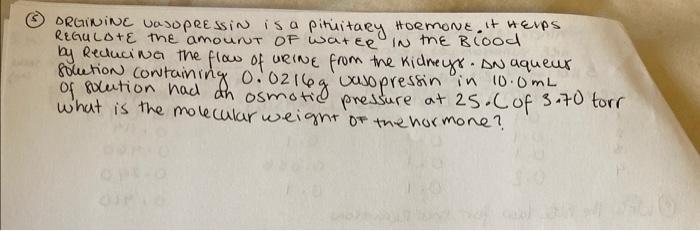 ⑤ ARGININE VASOPRESSIN is a pituitary HORMONE. It HELPS
REGULATE the amount OF Water IN the Blood
by Reducing the flow of URINE from the Kidneys. AN aqueus
solution containing 0.0216g vasopressin in 10.0mL
of solution had an osmotic pressure at 25.C of 3.70 torr
what is the molecular weight OF the hormone?